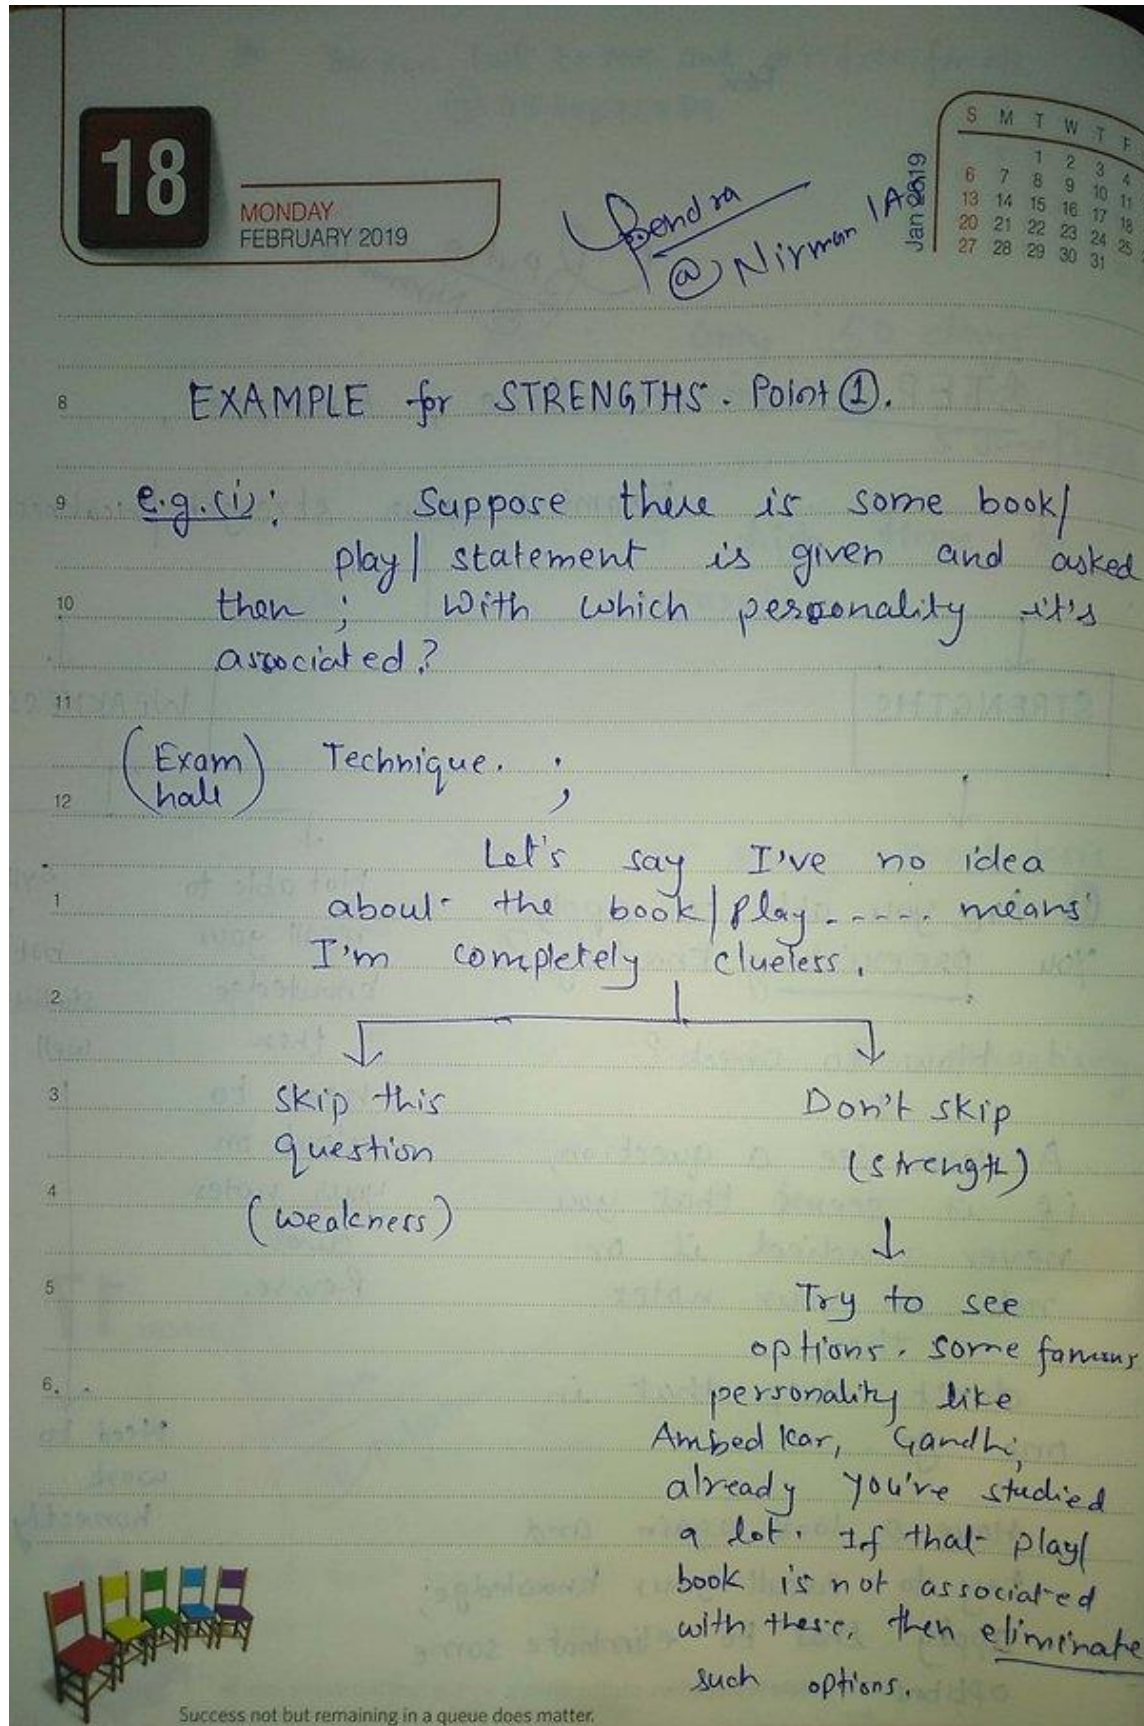 18
MONDAY
FEBRUARY 2019
Upendra
@ Nirman IAS
Jan 2019
S M T W T F
1 2 3 4
6 7 8 9 10 11
13 14 15 16 17 18
20 21 22 23 24 25
27 28 29 30 31
8 EXAMPLE for STRENGTHS. Point ①.
9 e.g.(i): Suppose there is some book/
play/ statement is given and asked
10 then ; With which personality it's
associated?
11
(Exam hall) Technique. ;
12
Let's say I've no idea
1 about the book/play ----- means
I'm completely clueless.
2
3 Skip this
question
4 (weakness)
Don't skip
(strength)
5 Try to see
options. some famous
6 personality like
Ambedkar, Gandhi,
already you've studied
a lot. If that play/
book is not associated
with these, then eliminate
such options.
Success not but remaining in a queue does matter.